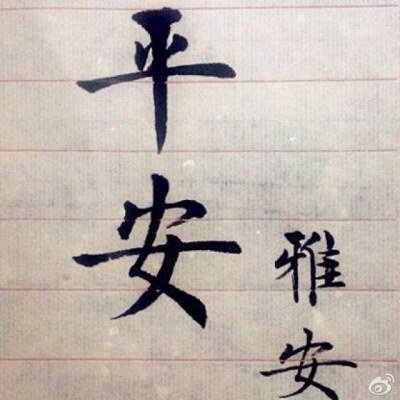 平安
雅安